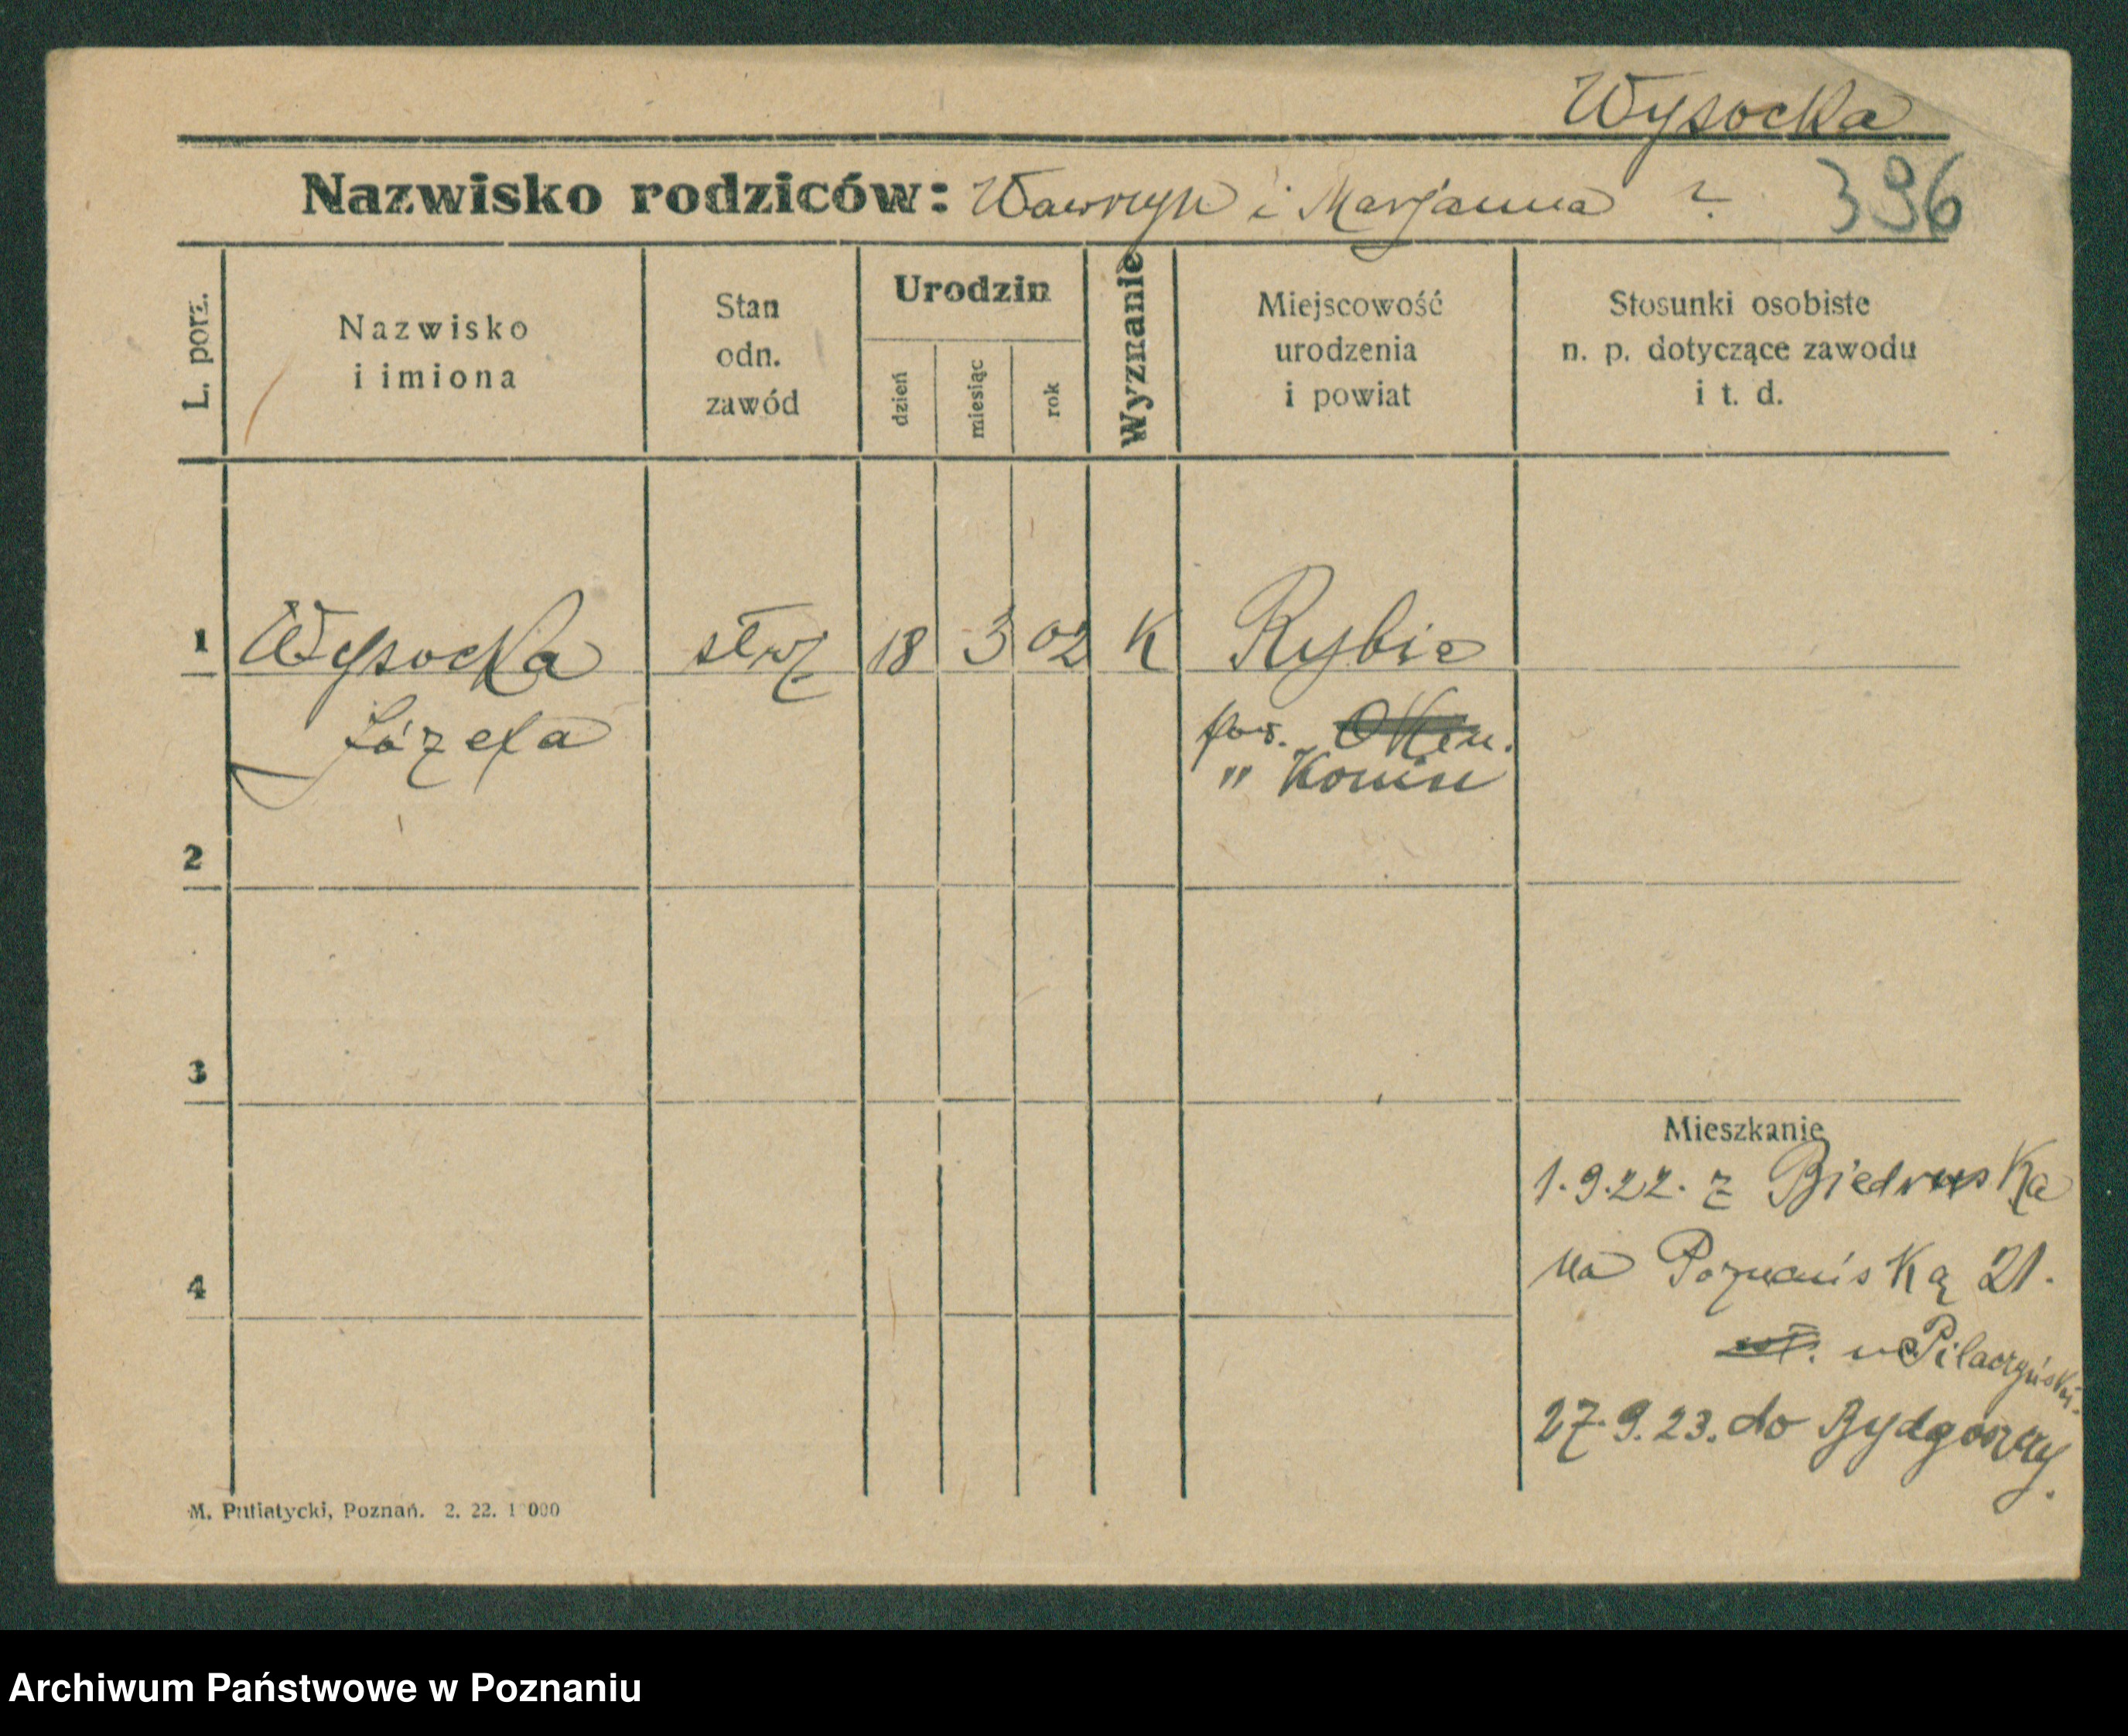 Wysocka
Nazwisko rodziców: Wawrzyn i Marjanna ?
396
L. porz.
Nazwisko
i imiona
Stan
odn.
zawód
Urodzin
dzień
miesiąc
rok
Wyznanie
Miejscowość
urodzenia
i powiat
Stosunki osobiste
n. p. dotyczące zawodu
i t. d.
1 Wysocka służ 18 3 02 K Rybie
Józefa
pow.
" Konin
2
3
4
Mieszkanie
1.9.22. z Biedruska
na Poznańską 21.
u Pilaczyński
27.9.23. do Bydgoszczy.
M. Putiatycki, Poznań. 2. 22. 1 000
Archiwum Państwowe w Poznaniu